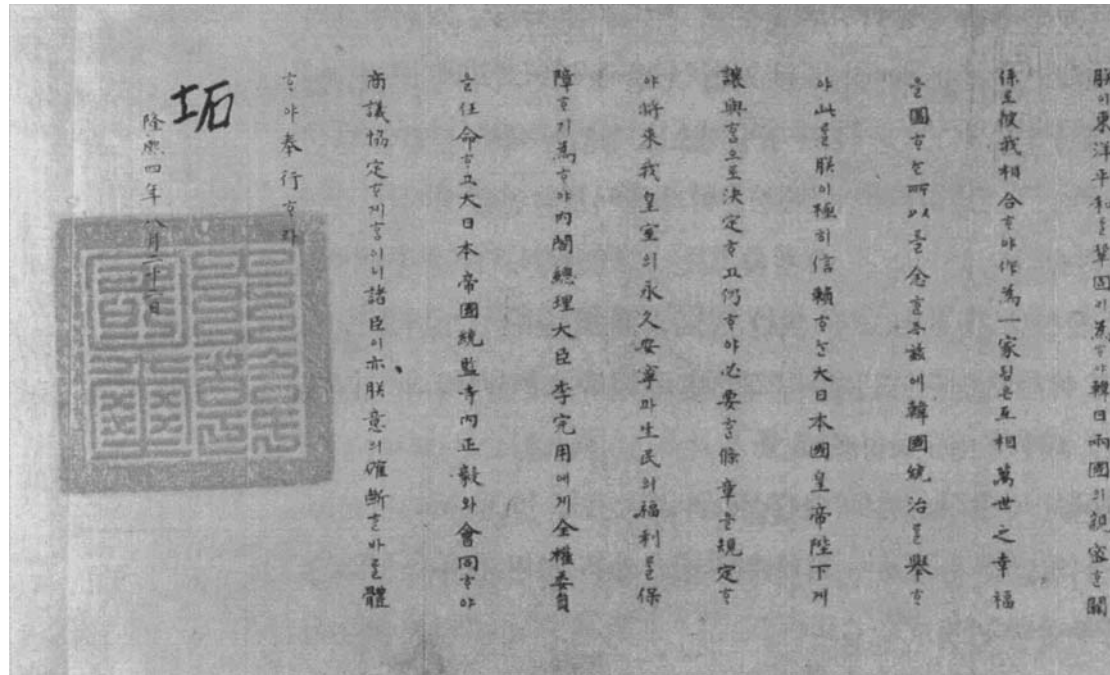 朕이東洋平和를鞏固키爲ᄒᆞ야韓日兩國의親密ᄒᆞᆫ關
係로彼我相合ᄒᆞ야作爲一家됨은互相萬世之幸福
을圖ᄒᆞᄂᆞᆫ所以를念ᄒᆞᆫ즉玆에韓國統治를擧ᄒᆞ
야此를朕이極히信賴ᄒᆞᄂᆞᆫ大日本國皇帝陛下게
讓與ᄒᆞᆷ으로決定ᄒᆞ고仍ᄒᆞ야必要ᄒᆞᆫ條章을規定ᄒᆞ
야將來我皇室의永久安寧과生民의福利를保
障ᄒᆞ기爲ᄒᆞ야內閣總理大臣李完用에게全權委員
을任命ᄒᆞ고大日本帝國統監寺內正毅와會同ᄒᆞ야
商議協定ᄒᆞ게ᄒᆞᆷ이니諸臣이亦朕意의確斷ᄒᆞᆫ바를體
ᄒᆞ야奉行ᄒᆞ라
坧
隆熙四年八月二十二日